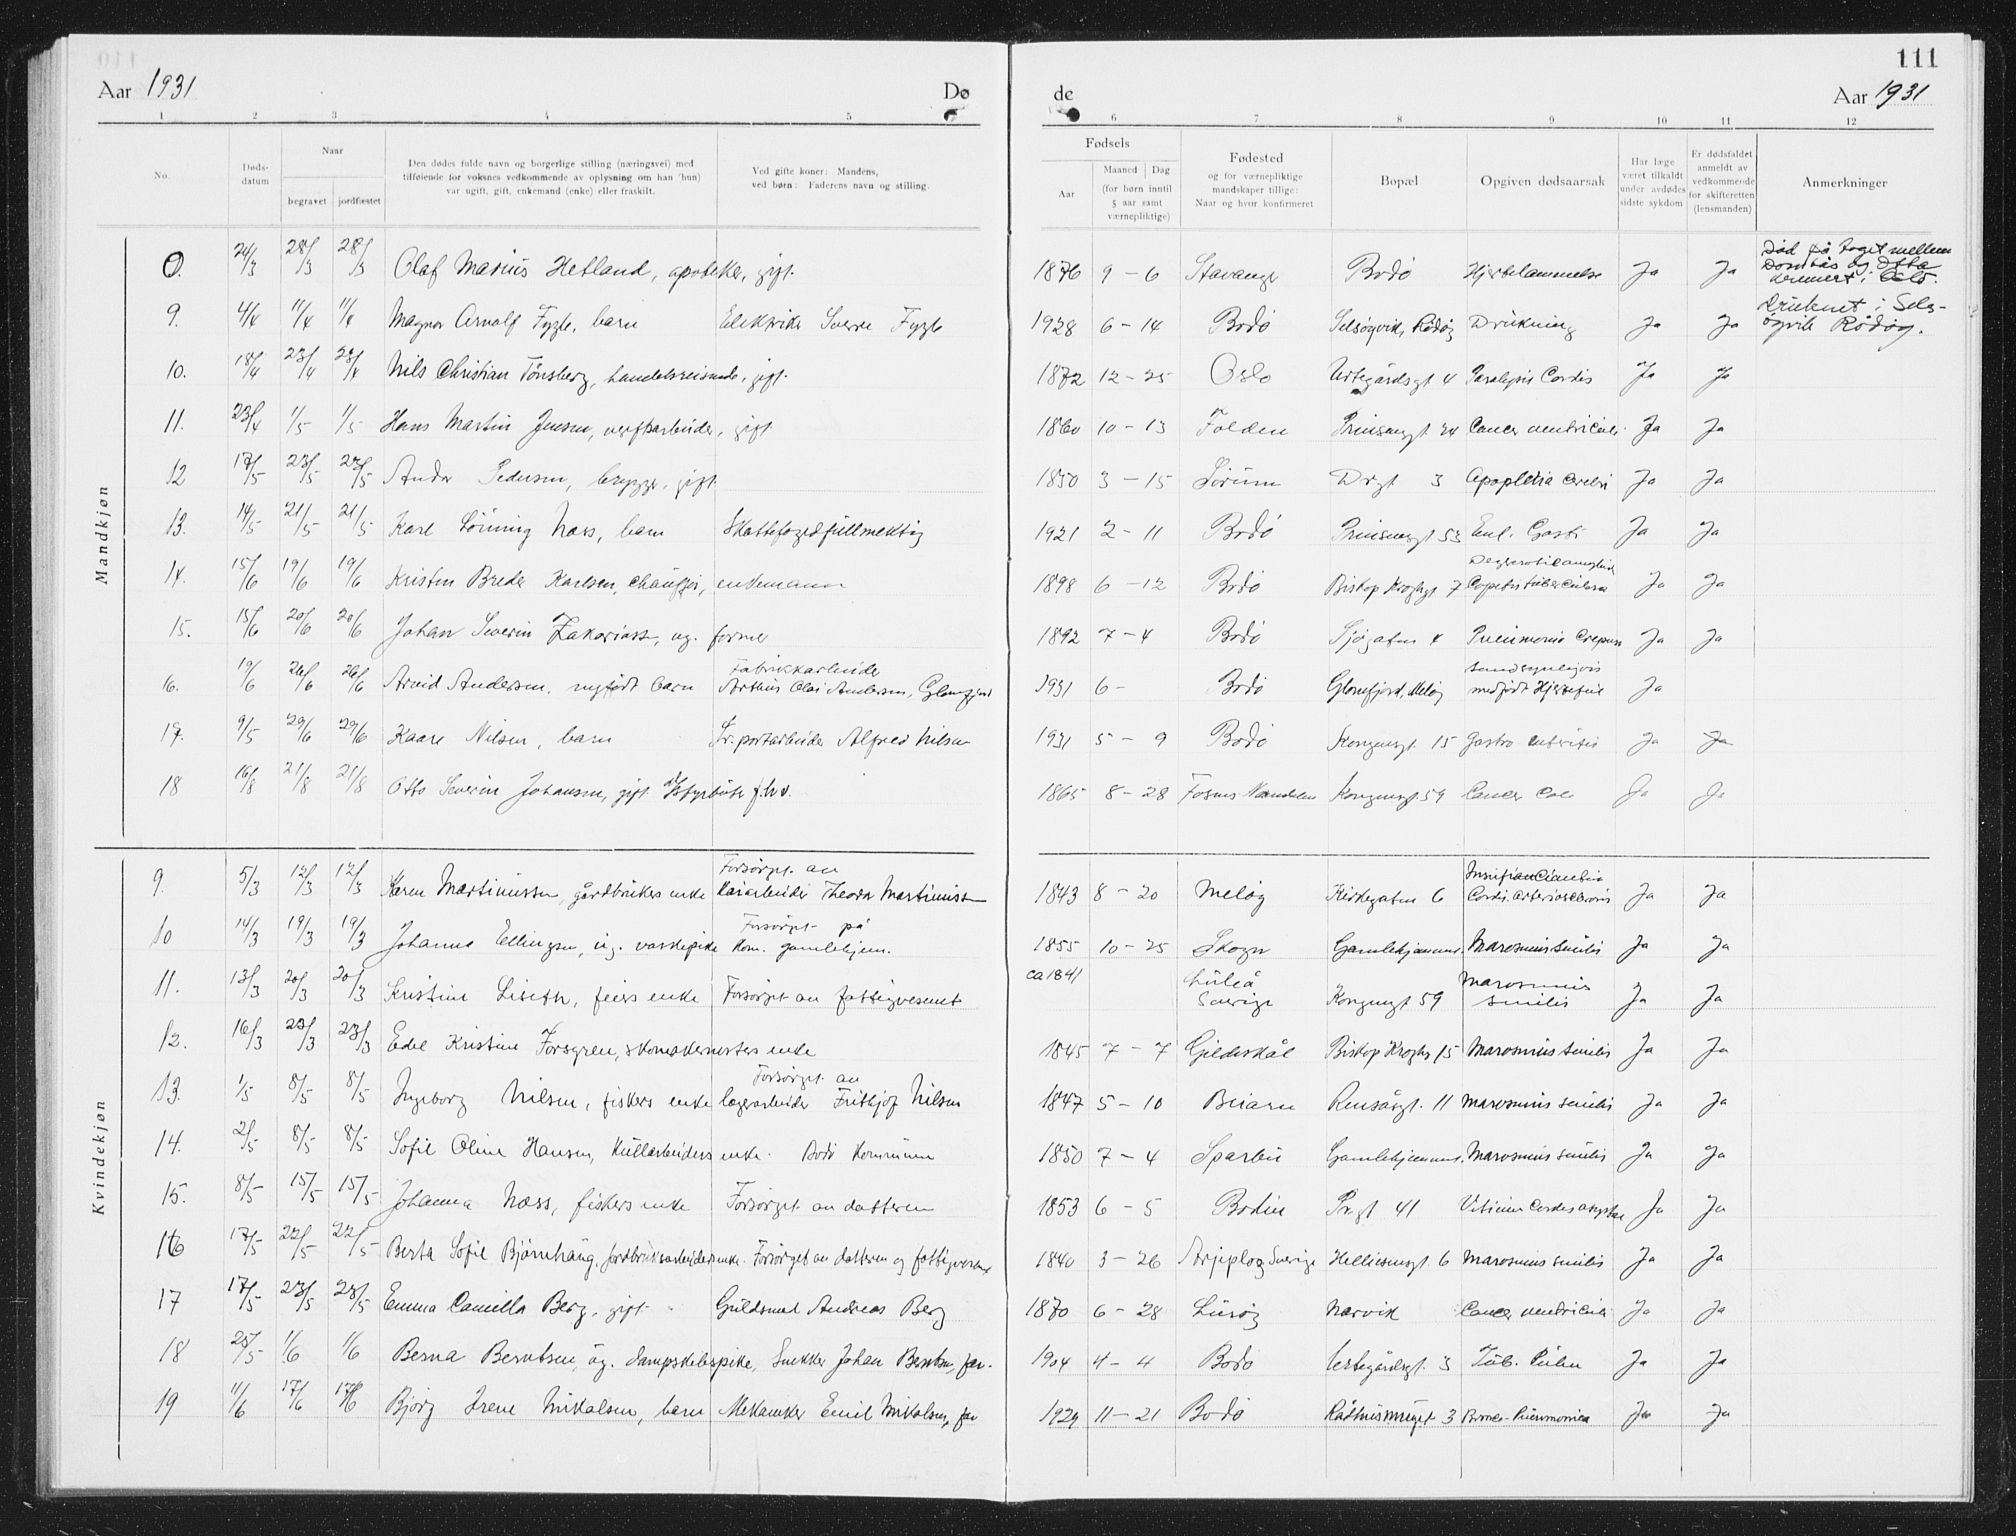 111
Aar 1931
Dø
de
Aar 1931
1 2 3 4 5 6 7 8 9 10 11 12
No.
Døds-
datum
Naar
begravet jordfæstet
Den dødes fulde navn og borgerlige stilling (næringsvei) med
tilføiende for voksnes vedkommende av oplysning om han (hun)
var ugift, gift, enkemand (enke) eller fraskilt.
Ved gifte koner: Mandens,
ved børn: Faderens navn og stilling.
Fødsels
Aar
Maaned Dag
(for børn inntil
5 aar samt
værnepliktige)
Fødested
og for værnepliktige
mandskaper tillige:
Naar og hvor konfirmeret
Bopæl
Opgiven dødsaarsak
Har læge
været tilkaldt
under avdødes
sidste sykdom
Er dødsfaldet
anmeldt av
vedkommende
for skifteretten
(lensmanden)
Anmerkninger
Mandkjøn
0. 24/3 28/3 28/3 Olaf Marius Hetland, apoteker, gift. 1876 9 - 6 Stavanger Bodö Hjertelammelse Ja Ja Död på toget mellem
Dombås og Otta
Oslo.
9. 4/4 11/4 11/4 Magnor Arnolf Fygle, barn Elektriker Sverre Fygle 1928 6 - 14 Bodö Selsøyvik, Rödöy Drukning Ja Ja Druknet i Sels-
öyvik Rödöy.
10. 18/4 23/4 23/4 Nils Christian Tönsberg, handelsreisende, gift. 1872 12 - 25 Oslo Urtegårdsgt 4 Paralysis Cordis Ja Ja
11. 23/4 1/5 1/5 Hans Martin Jensen, verftsarbeider, gift 1860 10 - 13 Folden Prinsensgt 24 Cancer ventriculi Ja Ja
12 17/5 23/5 23/5 Ander Pedersen, brygger, gift 1850 3 - 15 Sörum Drgt 3 Apoplexia Cerebri Ja Ja
13. 14/5 21/5 21/5 Kare Lönning Næss, barn Skattefogedfullmektig 1921 2 - 11 Bodö Prinsensgt 53 Ja Ja
14. 15/6 19/6 19/6 Kristen Breder Karlsen, chauffør, enkemann 1898 6 - 12 Bodö Bistop Kroghsgt 7 Ja Ja
15. 15/6 20/6 20/6 Johan Severin Zakariass, ug. former 1892 7 - 4 Bodö Sjögaten 4 Pneumonia Ja Ja
16. 19/6 26/6 26/6 Arvid Andersen, nyfödt barn Fabrikkarbeider
Arthur Olai Andersen, Glomfjord 1931 6 - Bodö Glomfjord, Melöy Sandsynligvis
medfödt Hjertefeil Ja
17. 9/5 29/6 29/6 Kaare Nilsen, barn Tr.portarbeider Alfred Nilsen 1931 5 - 9 Bodö Kongensgt. 15 Gastro enteritis Ja Ja
18 16/8 21/8 21/8 Otto Severin Johansen, gift f.hv. 1865 8 - 28 Fosnes Namdalen Kongensgt 59 Cancer Coli Ja Ja
Kvindekjøn
9. 5/3 12/3 12/3 Karen Martinussen, gårdbrukers enke Forsörget av
Kaiarbeider Theodor Martinussen 1843 8 - 20 Melöy Kirkegaten 6 Insufficientia
Cordis. arteriosclerosis Ja Ja
10 14/3 19/3 19/3 Johanna Ellingsen, ug. vaskepike Forsörget på
Kom. gamlehjem. 1855 10 - 25 Skogn Gamlehjemmet. Marasmus senilis Ja Ja
11. 13/3 20/3 20/3 Kristine feiers enke Forsörget av fattigvesenet ca 1841 Luleå
Sverige Kongensgt 59 Marasmus
senilis Ja Ja
12. 16/3 23/3 23/3 Edel Kristine Forsgren, skomakermesters enke 1845 7 - 7 Gildeskål Biskop Kroghsg 15 Marasmus senilis Ja Ja
13. 1/5 8/5 8/5 Ingeborg Nilsen, fiskers enke Forsörget av
lagerarbeider Frithjof Nilsen 1847 5 - 10 Beiarn Rensåsgt. 11 Marasmus senilis Ja Ja
14. 2/5 8/5 8/5 Sofie Oline Hansen, kullarbeiders enke. Bodö Kommune 1850 7 - 4 Sparbu Gamlehjemmet. Marasmus senilis Ja Ja
15. 8/5 15/5 15/5 Johanna Næss, fiskers enke Forsörget av datteren 1853 6 - 5 Bodin Pr.gt 41 Vitium Cordis Ja Ja
16 17/5 22/5 22/5 Berta Sofie Björnhaug, jordbruksarbeidersenke. Forsörget av datteren og fattigvesenet 1840 3 - 26 Arjeplog Sverige Hellicsensgt. 6 Marasmus senilis Ja Ja
17 17/5 23/5 23/5 Emma Camilla Berg, gift Guldsmed Andreas Berg 1870 6 - 28 Luröy Narvik Cancer ventriculi Ja Ja
18 25/5 1/6 1/6 Berna Berntsen, ug. dampskibspike, Snekker Johan Berntsen, far. 1904 4 - 4 Bodö Urtegårdsgt. 3 Tub. Pulm Ja Ja
19 11/6 17/6 17/6 Bjørg Irene Mikalsen, barn Mekaniker Emil Mikalsen, far 1929 11 - 21 Bodö Rådhussmuget 3 Bronco-Pneumonica Ja Ja